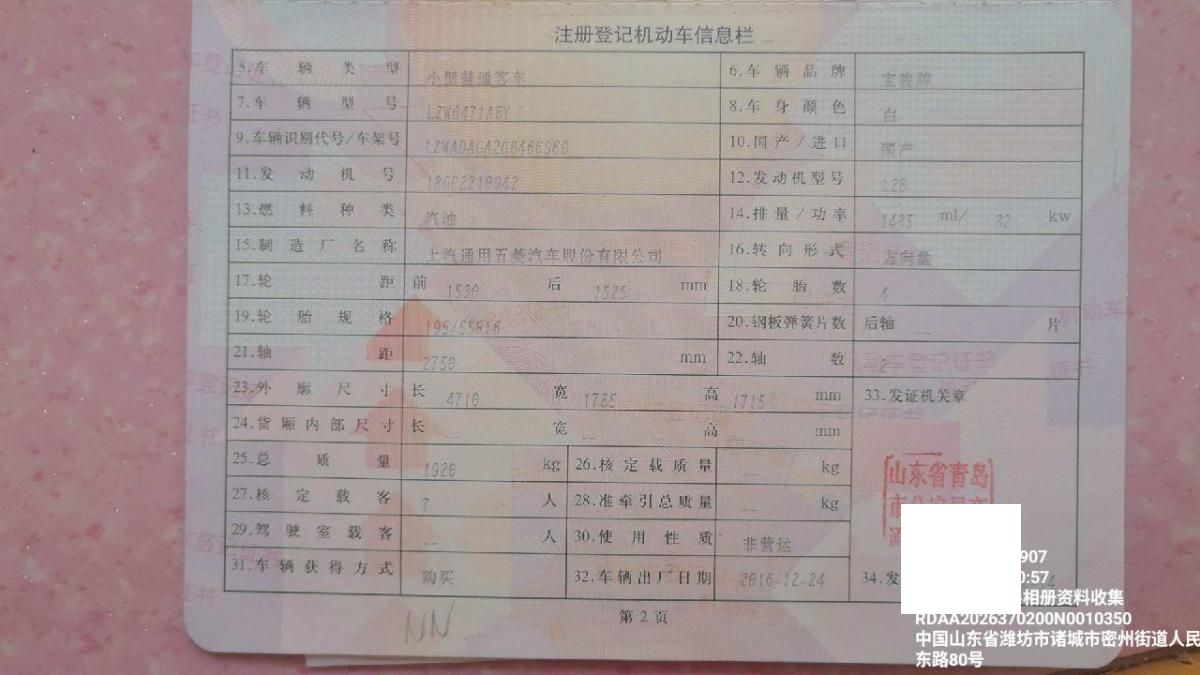 注册登记机动车信息栏
5.车辆类型 小型普通客车 6.车辆品牌 宝骏牌
7.车辆型号 LZW6471ABY 8.车身颜色 白
9.车辆识别代号/车架号 LZWADAGA2GB466968 10.国产/进口 国产
11.发动机号 18GC2210942 12.发动机型号 L2B
13.燃料种类 汽油 14.排量/功率 1485 ml/ 82 kw
15.制造厂名称 上汽通用五菱汽车股份有限公司 16.转向形式 方向盘
17.轮距 前 1530 后 1525 mm 18.轮胎数 4
19.轮胎规格 195/55R16 20.钢板弹簧片数 后轴 -- 片
21.轴距 2750 mm 22.轴数 2
23.外廓尺寸 长 4710 宽 1785 高 1715 mm 33.发证机关章
24.货厢内部尺寸 长 -- 宽 -- 高 -- mm
25.总质量 1920 kg 26.核定载质量 -- kg
27.核定载客 7 人 28.准牵引总质量 -- kg
29.驾驶室载客 -- 人 30.使用性质 非营运
31.车辆获得方式 购买 32.车辆出厂日期 2016-12-24 34.发
山东省青岛
第2页
NN
907
0:57
相册资料收集
RDAA2026370200N0010350
中国山东省潍坊市诸城市密州街道人民
东路80号